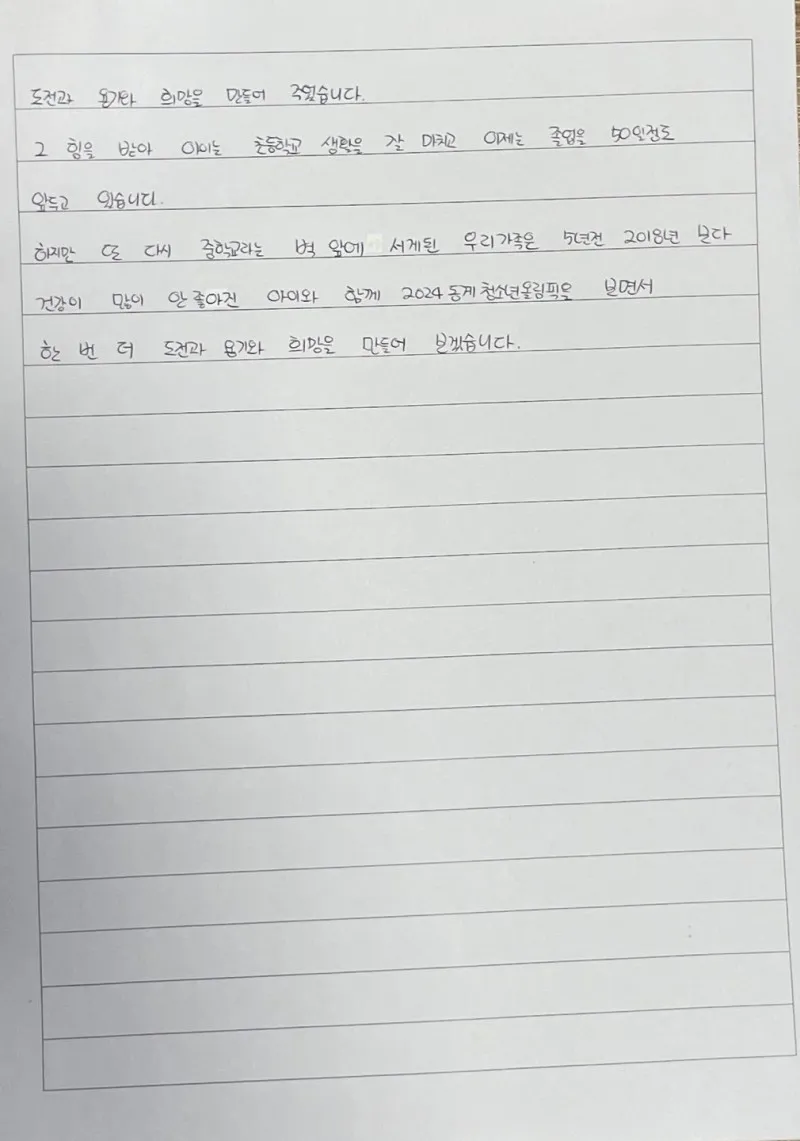 도전과 용기와 희망을 만들어 주었습니다.
그 힘을 받아 아이는 초등학교 생활을 잘 마치고 이제는 졸업을 50일정도
앞두고 있습니다.
하지만 또 다시 중학교라는 벽 앞에 서게된 우리가족은 5년전 2018년 보다
건강이 많이 안 좋아진 아이와 함께 2024 동계 청소년올림픽을 보면서
한 번 더 도전과 용기와 희망을 만들어 보겠습니다.